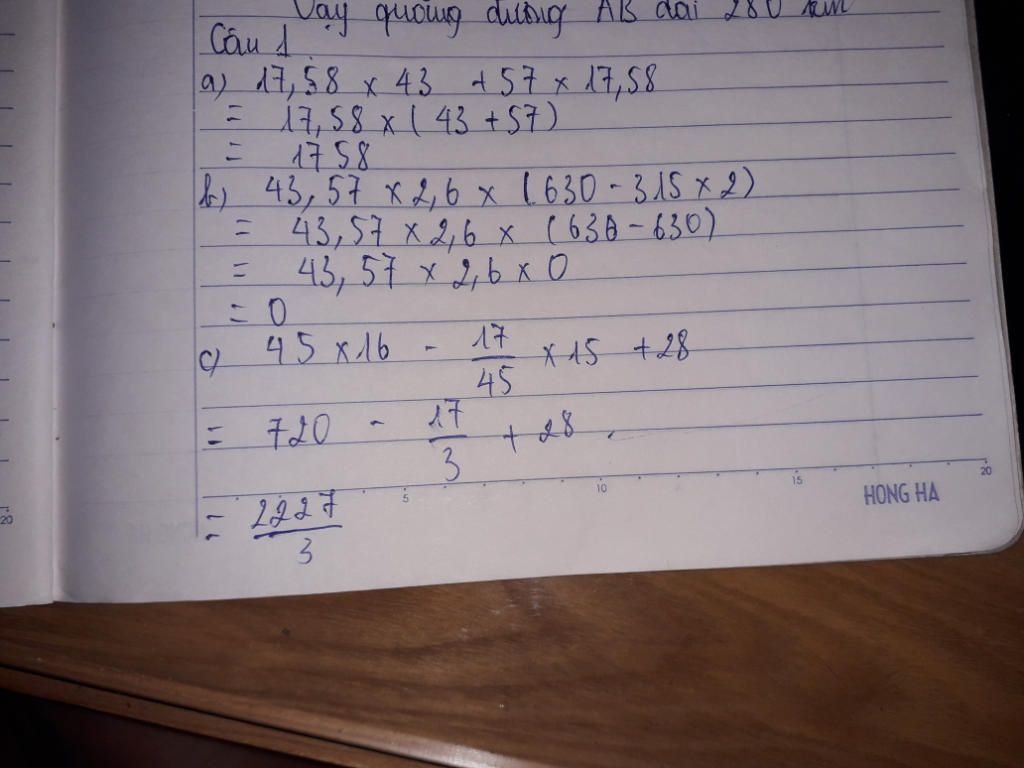 Vậy quãng đường AB dài 280 km
Câu 1
a) 17,58 × 43 + 57 × 17,58
= 17,58 × ( 43 + 57)
= 1758
b) 43,57 × 2,6 × (630 - 315 × 2)
= 43,57 × 2,6 × (630 - 630)
= 43,57 × 2,6 × 0
= 0
c) 45 × 16 - 17/45 × 15 + 28
= 720 - 17/3 + 28
= 2227/3
5 10 15 20
HONG HA
20